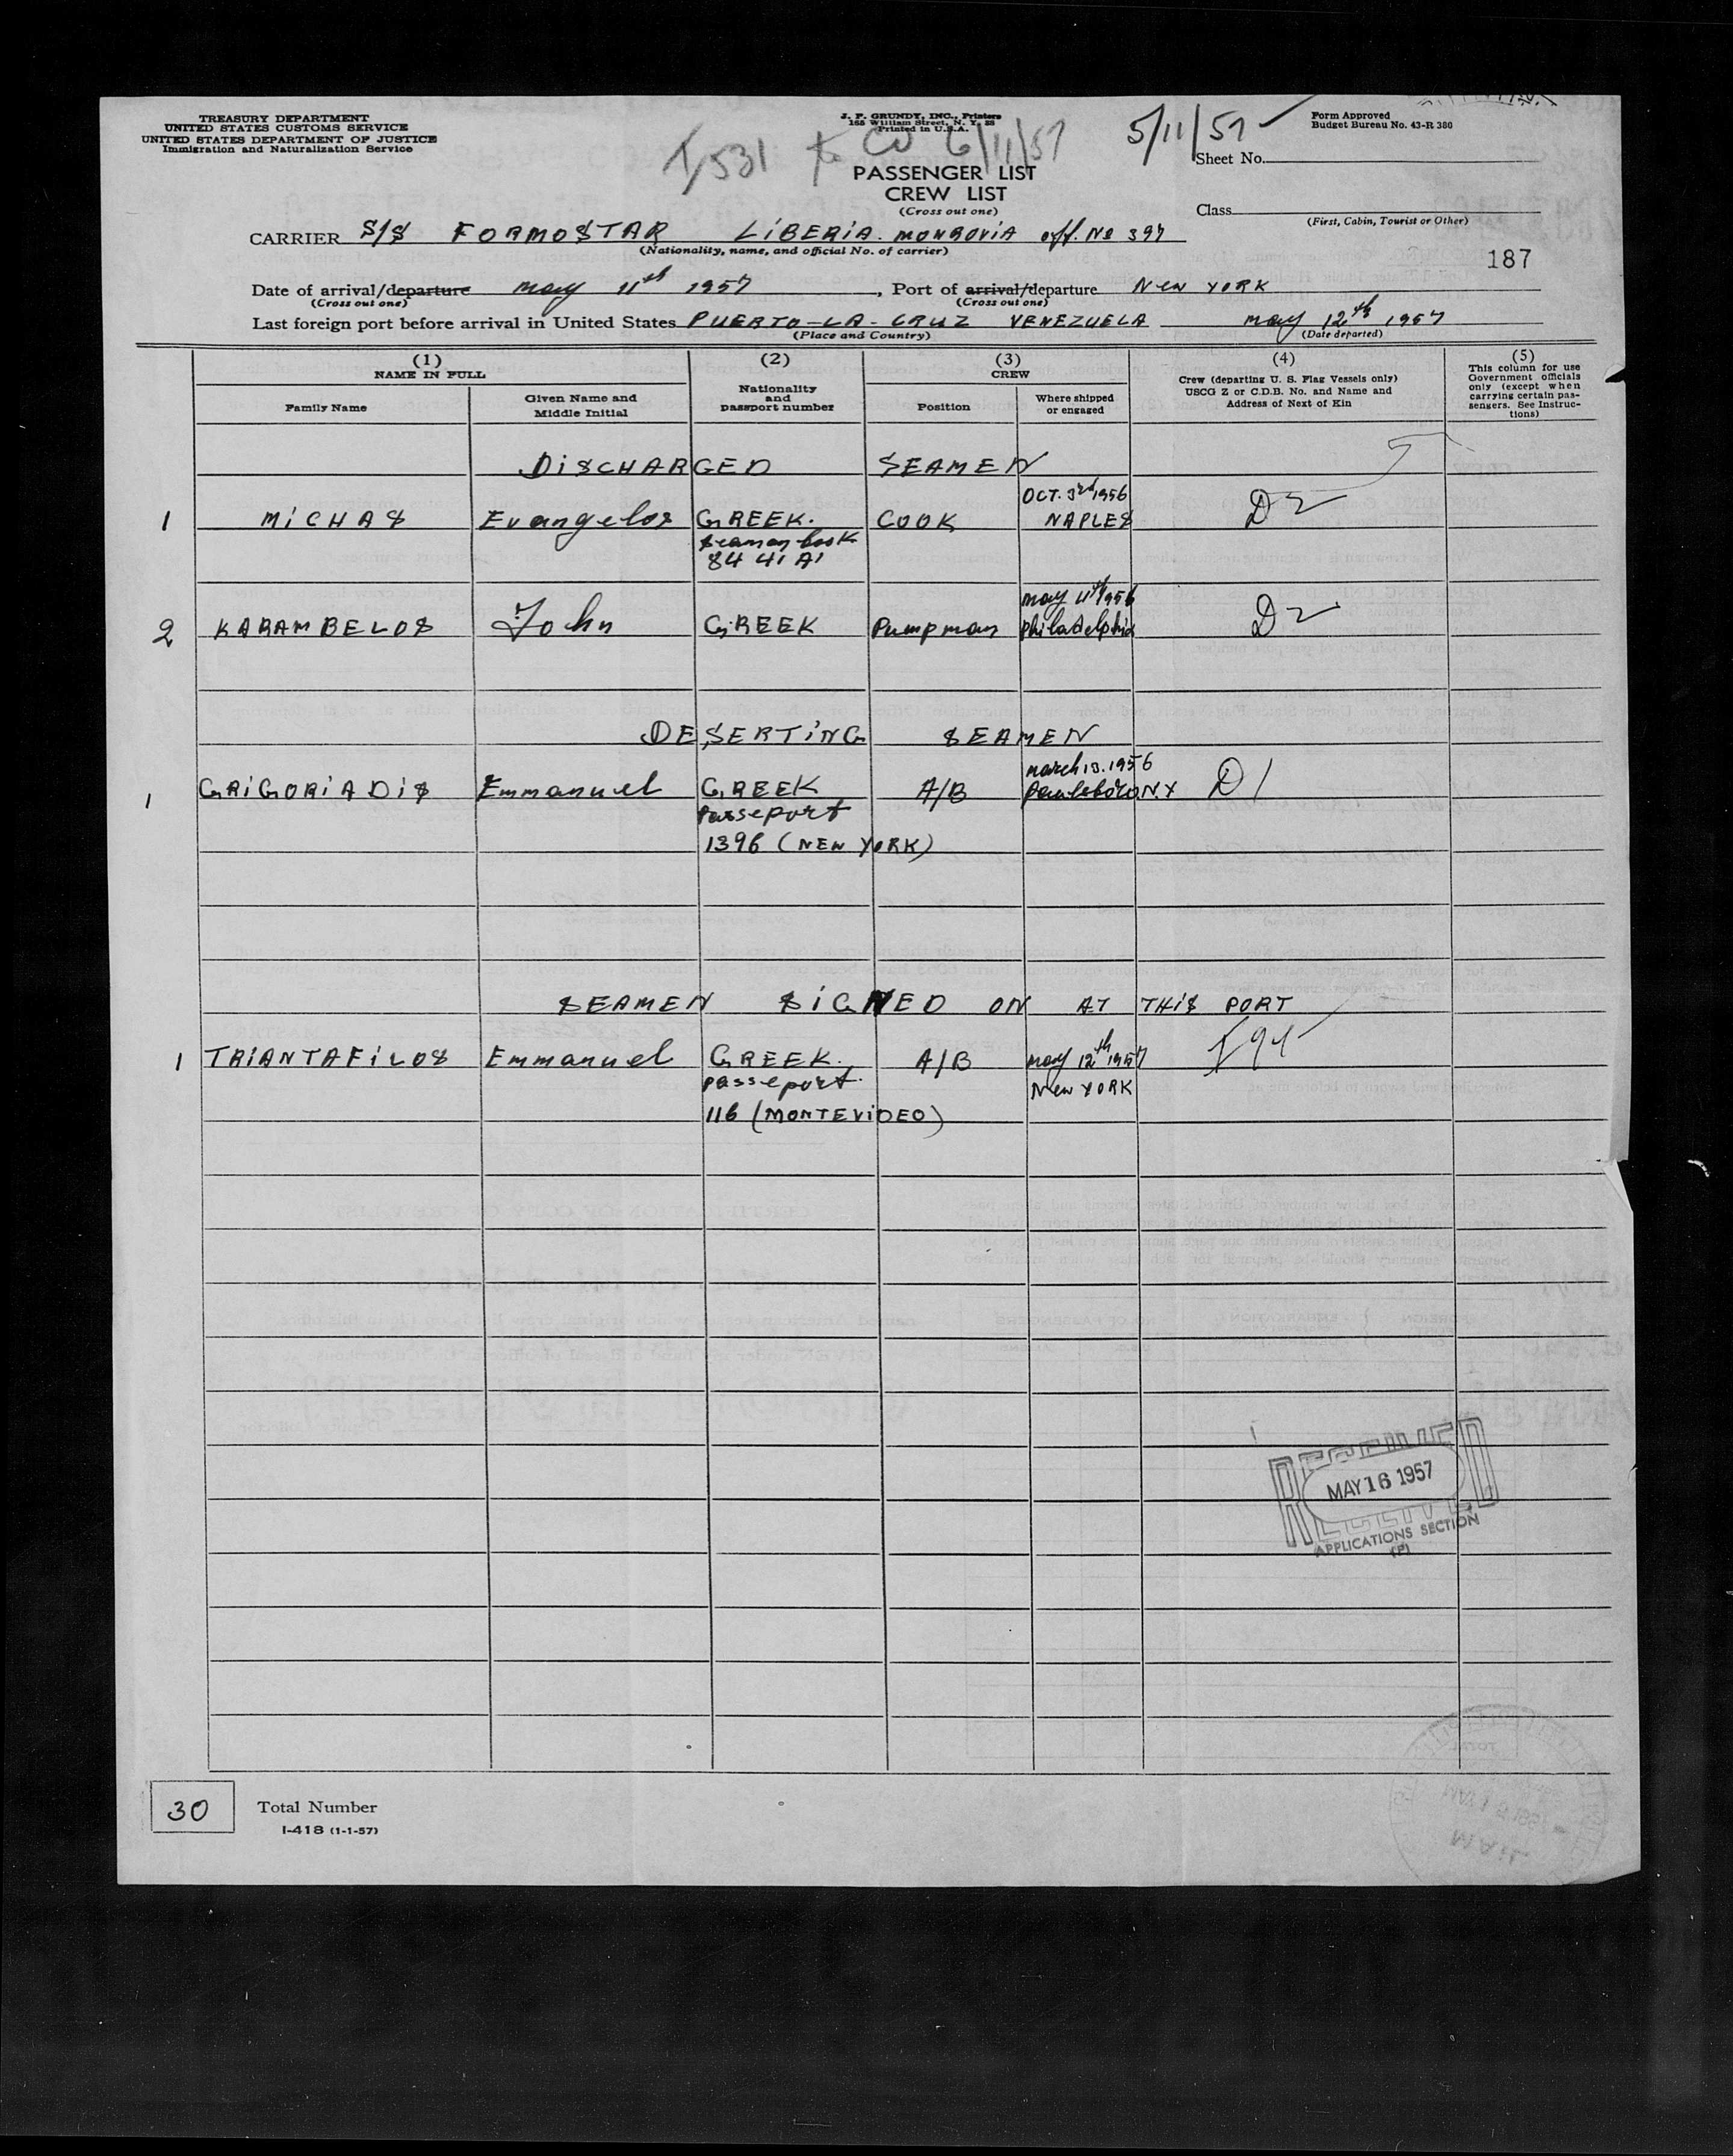 TREASURY DEPARTMENT
UNITED STATES CUSTOMS SERVICE
UNITED STATES DEPARTMENT OF JUSTICE
Immigration and Naturalization Service
J. F. GRUNDY, INC., Printers
165 William Street, N. Y. 38
Printed in U.S.A.
5/11/57
Form Approved
Budget Bureau No. 43-R 380
Sheet No.
6/11/57
PASSENGER LIST
CREW LIST
(Cross out one)
Class
(First, Cabin, Tourist or Other)
CARRIER S/S FORMOSTAR LIBERIA. MONROVIA off. No 397
(Nationality, name, and official No. of carrier)
187
Date of arrival/departure may 11th 1957, Port of arrival/departure NEW YORK
(Cross out one) (Cross out one)
Last foreign port before arrival in United States PUERTO-LA-CRUZ VENEZUELA may 12th 1957
(Place and Country) (Date departed)
(1) (2) (3) (4) (5)
NAME IN FULL
Family Name
Given Name and Middle Initial
Nationality and passport number
CREW
Position
Where shipped or engaged
Crew (departing U. S. Flag Vessels only)
USCG Z or C.D.B. No. and Name and
Address of Next of Kin
This column for use
Government officials
only (except when
carrying certain pas-
sengers. See Instruc-
tions)
DISCHARGED SEAMEN
OCT. 3rd 1956
1 MICHAS Evangelos GREEK. COOK NAPLES D2
seaman book
84 41 A1
may 11th 1956
2 KARAMBELOS John GREEK Pumpman Philadelphia D2
DESERTING SEAMEN
march 13. 1956
1 GRIGORIADIS Emmanuel GREEK A/B Paulsboro N.Y D1
Passeport
1396 (NEW YORK)
SEAMEN SIGNED ON AT THIS PORT
1 TRIANTAFILOS Emmanuel GREEK. A/B may 12th 1957 I 94
passeport. New YORK
116 (MONTEVIDEO)
RECEIVED
MAY 16 1957
APPLICATIONS SECTION
(P)
30 Total Number
I-418 (1-1-57)